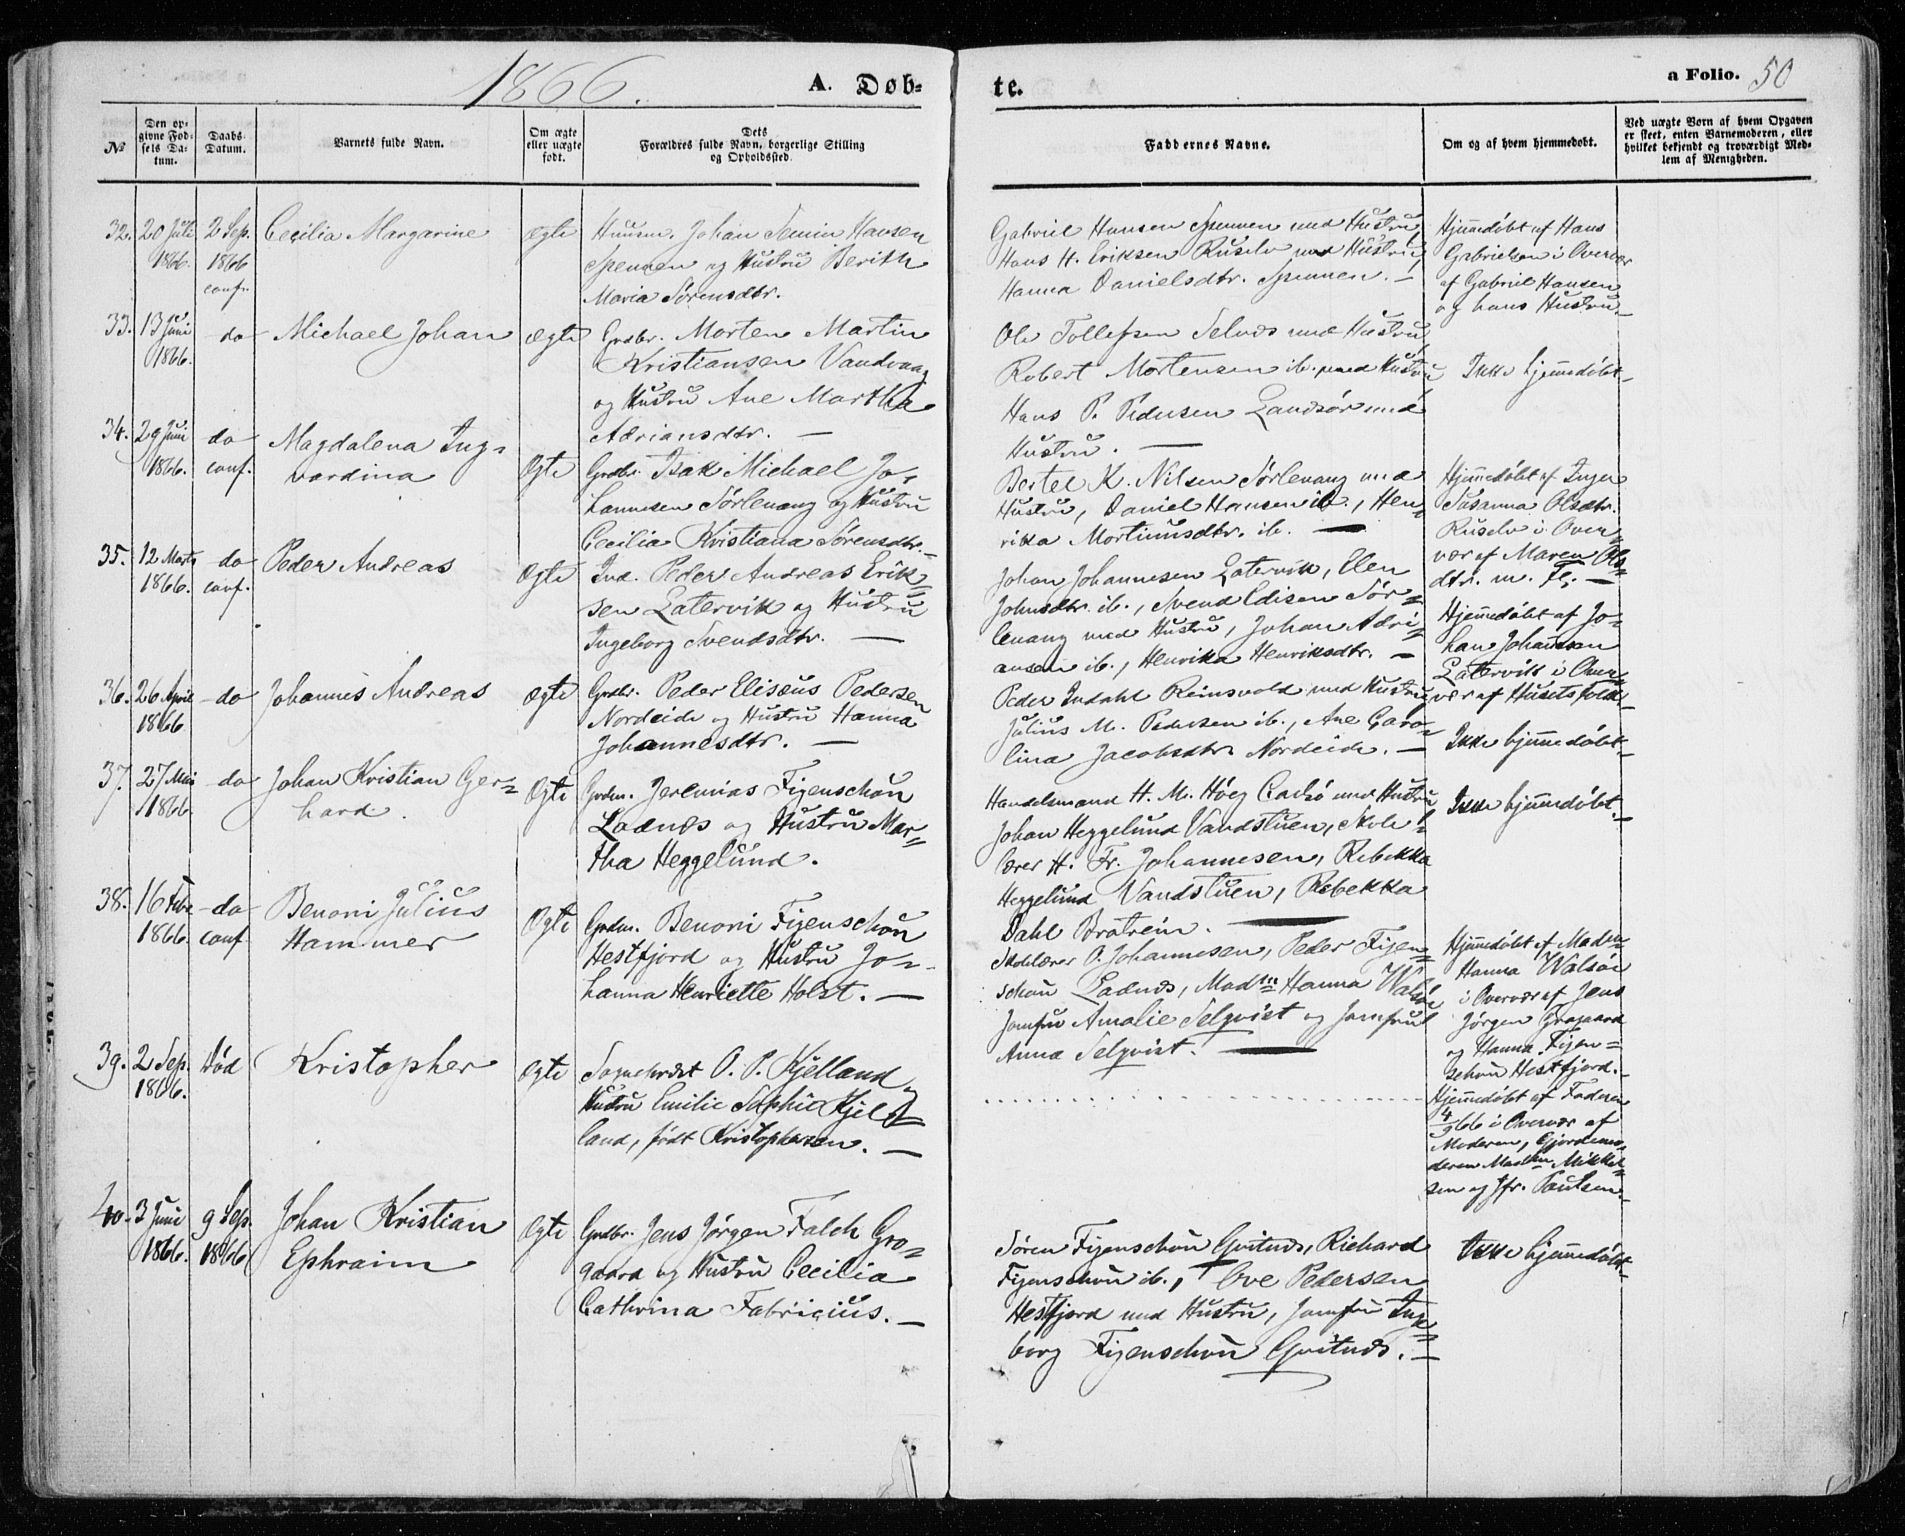 1866.
A. Døb-
te.
a Folio. 50
No
Den op-
givne Fød-
sels Da-
tum.
Daabs-
Datum.
Barnets fulde Navn.
Om ægte
eller uægte
født.
Dets
Forældres fulde Navn, borgerlige Stilling
og Opholdssted.
Faddernes Navne.
Om og af hvem hjemmedøbt.
Ved uægte Børn af hvem Opgaven
er skeet, enten Barnemoderen, eller
hvilket bekjendt og troværdigt Med-
lem af Menigheden.
32.
20 Juli
1866.
2 Sep.
1866
conf.
Cecilia Margarine
Ægte
Huusm. Johan Hansen
Spennen og Hustru Berith
Maria Sørensdtr.
Gabriel Hansen Spennen med Hustru,
Hans H. Eriksen Ruselv med Hustru,
Hanna Danielsdtr. Spennen. —
Hjemmedøbt af Hans
Gabrielsen i Overvær
af Gabriel Hansen
og hans Hustru. —
33.
13 Juni
1866.
do
Michael Johan
Ægte
Grdbr. Morten Martin
Kristiansen Vandvaag
og Hustru Ane Martha
Adriansdtr. —
Ole Tollefsen Selnæs med Hustru,
Robert Mortensen ib. med Hustru
Hans P. Pedersen Landsør med
Hustru. —
Ikke hjemmedøbt
34.
29 Juni
1866.
do
conf.
Magdalena Ing-
vardina
Ægte
Grdbr. Isak Michael Jo-
hannesen Sørlenang og Hustru
Cecilia Kristiana Sørensdtr. —
Bertel K. Nilsen Sørlenang med
Hustru, Daniel Hansen ib., Hen-
rika Mortinusdtr. ib. —
Hjemmedøbt af Inger
Susanna Olsdtr.
Ruselv i Over-
vær af Maren Ols-
dtr. m. Fl. —
35.
12 Marts
1866.
do
conf.
Peder Andreas
Ægte
Ind. Peder Andreas Erik-
sen Latervik og Hustru
Ingeborg Svendsdtr. —
Johan Johannesen Latervik, Elen
Johnsdtr. ib., Svend Edisen Sør-
lenang med Hustru, Johan Adri-
ansen ib., Henrika Henriksdtr. —
Hjemmedøbt af Jo-
han Johannesen
Latervik i Over-
vær af Husets folk —
36.
26 April
1866
do
Johannes Andreas
Ægte
Grdbr. Peder Elisæus Pedersen
Nordeide og Hustru Hanna
Johannesdtr. —
Peder Indahl Reinsvold med Hustru,
Julius M. Pedersen ib., Ane Caro-
lina Jacobsdtr. Nordeide. —
Ikke hjemmedøbt —
37.
27 Mai
1866.
do
Johan Kristian Ger-
hard.
Ægte
Grdm. Jeremias Figenschou
Ladnæs og Hustru Mar-
tha Heggelund.
Handelsmand H. M. Høeg Carlsø med Hustru
Johan Heggelund Vandstuen, Skole-
lærer H. Fr. Johannesen, Rebekka
Heggelund Vandstuen, Rebekka
Dahl Bratrein. —
Ikke hjemmedøbt. —
38.
16 Febr
1866.
do
conf
Benoni Julius
Hammer
Ægte
Grdm. Benoni Figenschou
Hestfjord og Hustru Jo-
hanna Henriette Holst. —
Skolelærer O. Johannesen, Peder Figen-
schou Ladnæs, Mad. Hanna Walsøe
Jomfru Amalie Selqvist og Jomfru
Anna Selqvist. —
Hjemmedøbt af Madm
Hanna Walsøe
i Overvær af Jens
Jørgen Grogaard
og Hanna Figen-
schou Hestfjord. —
39.
2 Sep.
1866.
Død
Kristopher
Ægte
Sognepræst O. P. Kjelland og
Hustru Emilie Sophie Kjel-
land, født Kristophersen. —
Hjemmedøbt af Faderen
4/9 66 i Overvær af
Moderen, Gjordemo-
deren Madm Mikkel-
sen og Jfr. Paulsen —
40.
3 Juni
1866.
9 Sep.
1866
Johan Kristian
Ephraim
Ægte
Grdbr. Jens Jørgen Falch Gro-
gaard og Hustru Cecilia
Cathrina Fabricius. —
Søren Figenschou Gvitnæs, Richard
Figenschou ib., Ove Pedersen
Hestfjord med Hustru, Jomfru Inge-
borg Figenschou Gvitnæs. —
Ikke hjemmedøbt —